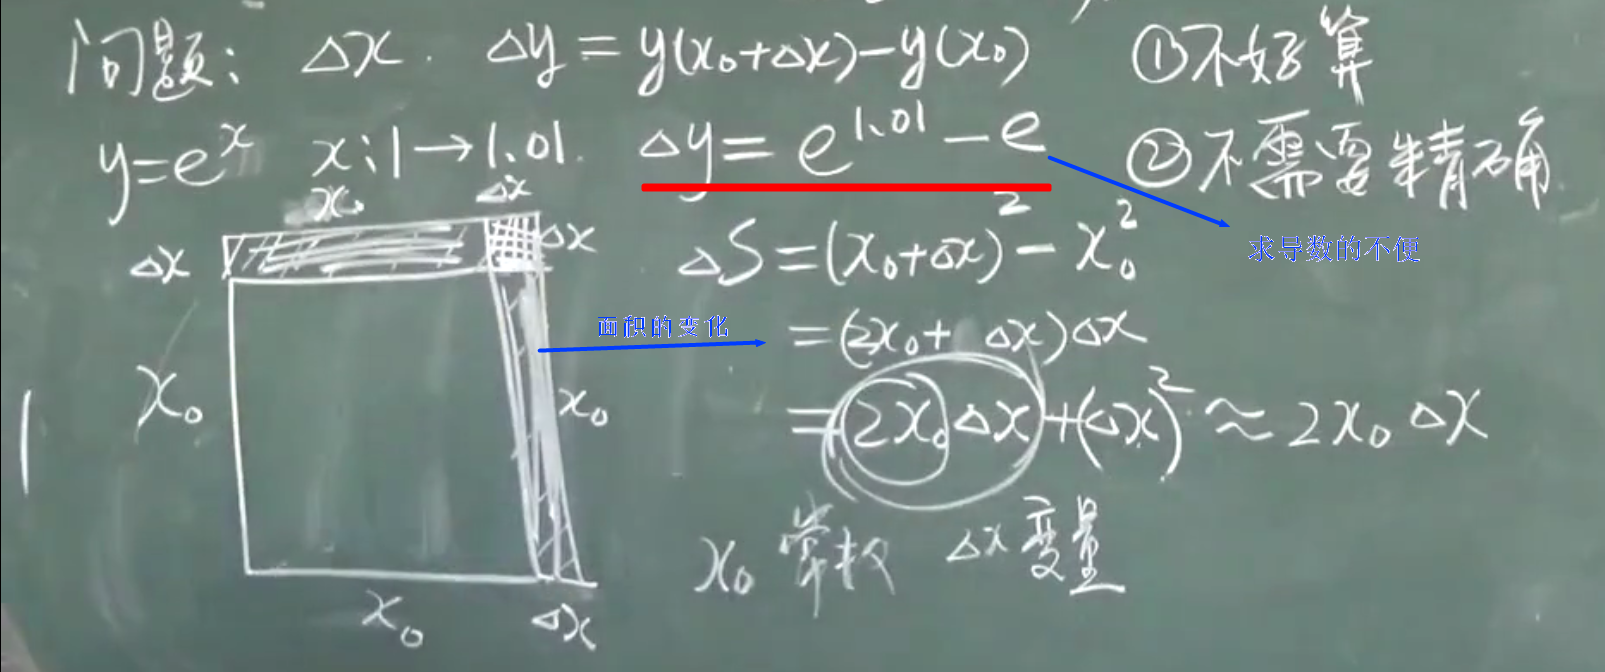 问题: Δx. Δy = y(x₀+Δx)-y(x₀) ①不好算
y=eˣ x:1→1.01. Δy = e^1.01 - e ②不需要精确
x₀ Δx
Δx Δx ΔS = (x₀+Δx)² - x₀² 求导数的不便
面积的变化 = (2x₀+Δx)Δx
x₀ x₀ = 2x₀Δx + (Δx)² ≈ 2x₀Δx
x₀ 常数 Δx 变量
x₀ Δx